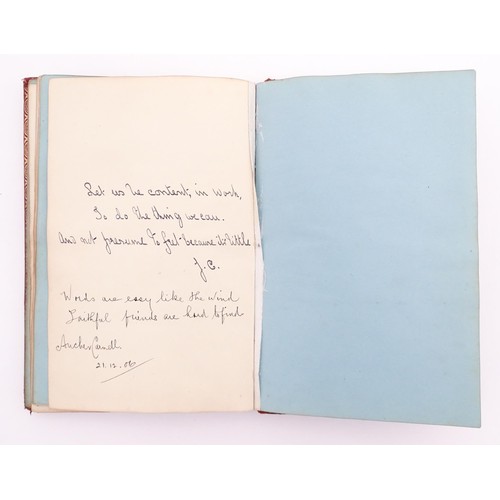 Let us be content, in work,
To do the thing we can.
And not presume to fret because it's little
J. C.
Words are easy like the wind
Faithful friends are hard to find
21.12.06